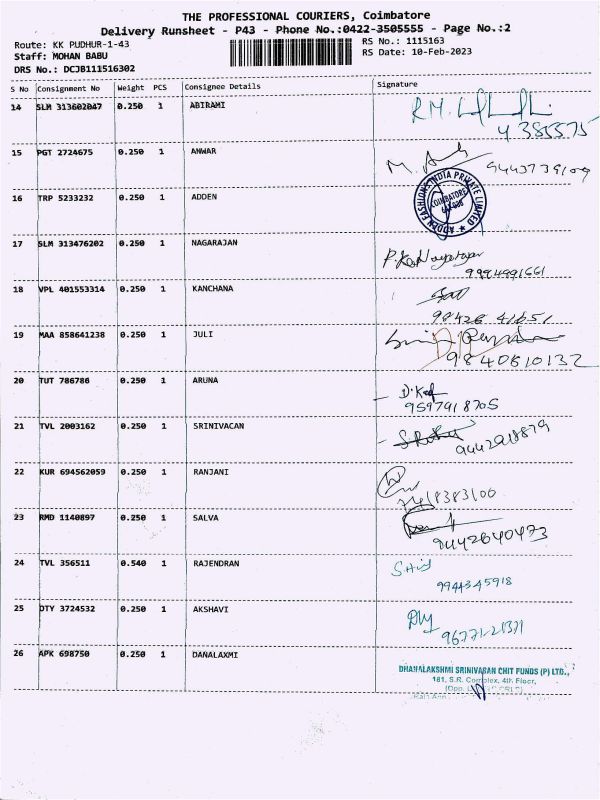 THE PROFESSIONAL COURIERS, Coimbatore
Delivery Runsheet - P43 - Phone No.:0422-3505555 - Page No.:2
Route: KK PUDHUR-1-43
RS No.: 1115163
Staff: MOHAN BABU
RS Date: 10-Feb-2023
DRS No.: DCJB111516302
S No Consignment No Weight PCS Consignee Details Signature
14 SLM 313602047 0.250 1 ABIRAMI
15 PGT 2724675 0.250 1 ANWAR
9443739109
16 TRP 5233232 0.250 1 ADDEN
ADDEN FASHIONS INDIA PRIVATE LIMITED
COIMBATORE
17 SLM 313476202 0.250 1 NAGARAJAN
9994991661
18 VPL 401553314 0.250 1 KANCHANA
98426 41651
19 MAA 858641238 0.250 1 JULI
9840610132
20 TUT 786786 0.250 1 ARUNA
9597918705
21 TVL 2003162 0.250 1 SRINIVACAN
9442918879
22 KUR 694562059 0.250 1 RANJANI
7418383100
23 RMD 1140897 0.250 1 SALVA
9442640473
24 TVL 356511 0.540 1 RAJENDRAN
9944345918
25 DTY 3724532 0.250 1 AKSHAVI
9677121371
26 APK 698750 0.250 1 DANALAXMI
DHANALAKSHMI SRINIVASAN CHIT FUNDS (P) LTD.,
181, S.R. Complex, 4th Floor,